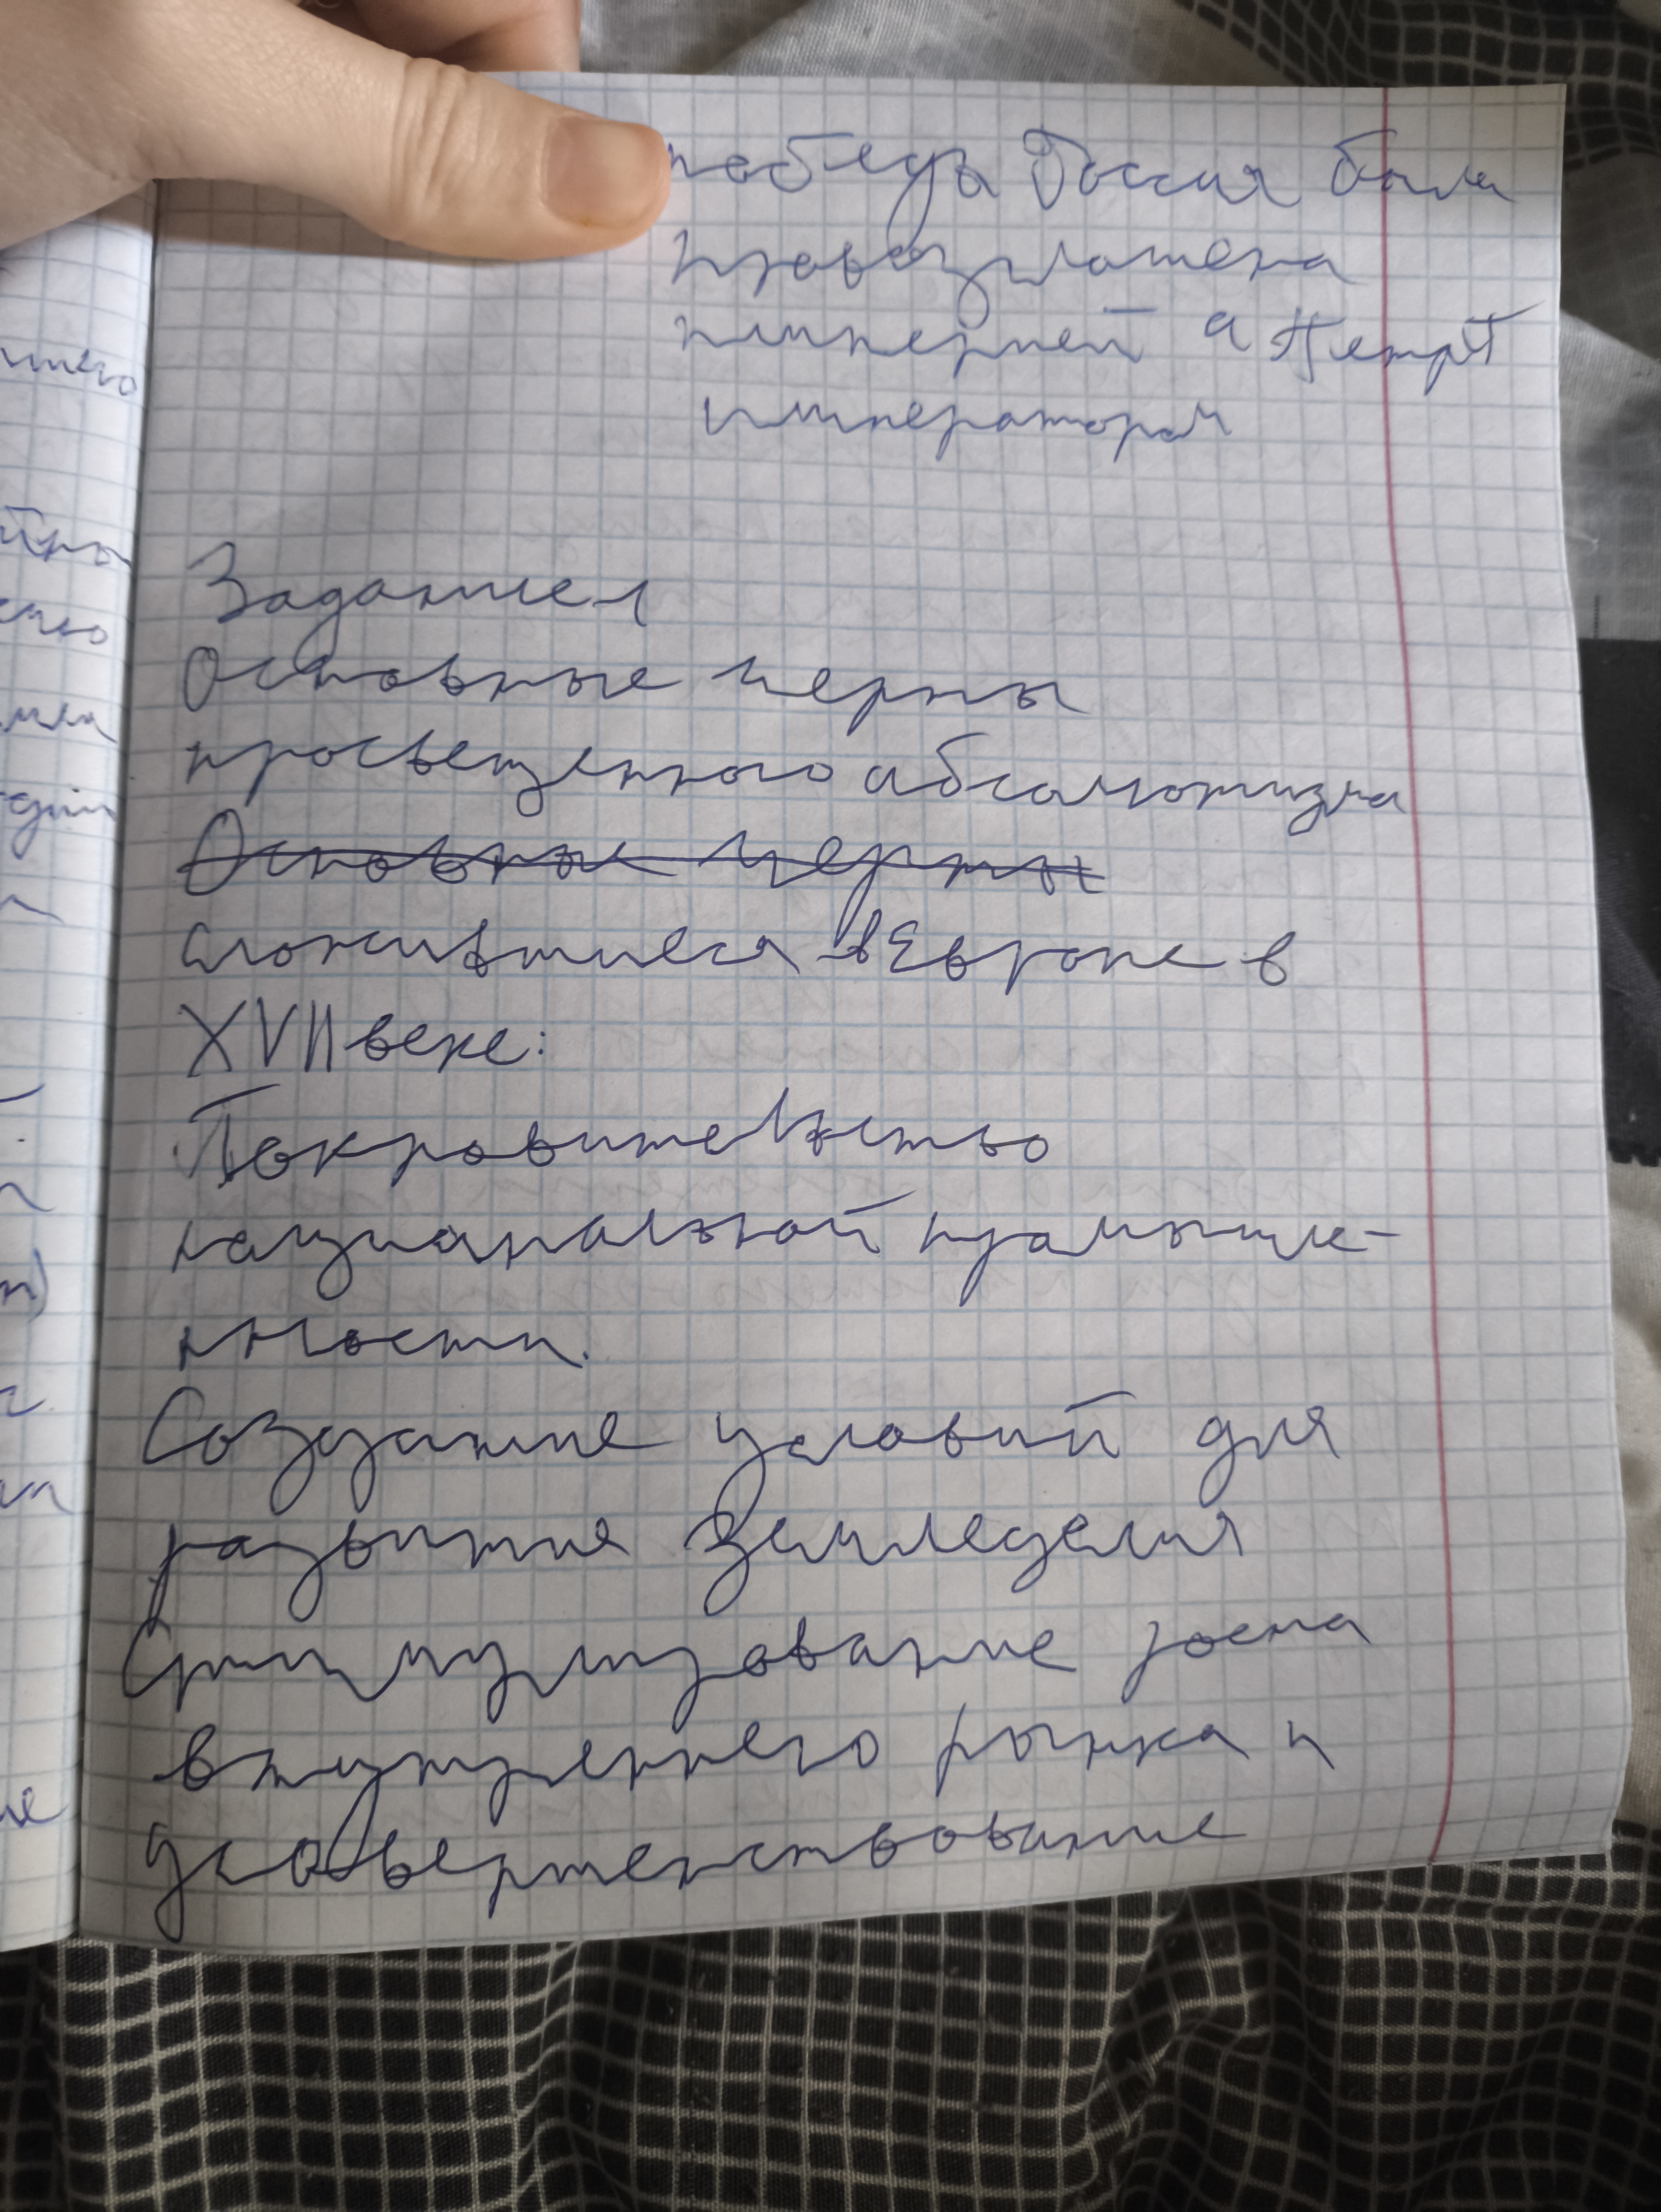 победы Россия была
провозглашена
империей а Петр I
императором
Задание 1
Основные черты
просвещенного абсолютизма
Основные черты
сложившиеся в Европе в
XVII веке:
Покровительство
национальной промышле-
нности.
Создание условий для
развитие земледелия
Стимулирование роста
внутреннего рынка и
усовершенствование